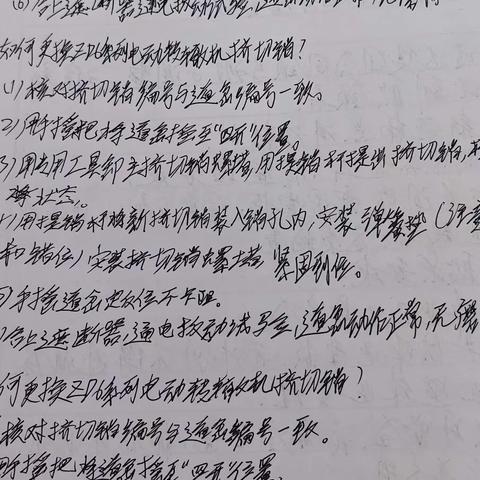 如何更换ZD6系列电动转辙机挤切销?
(1)核对挤切销编号与道岔编号一致。
2)用手摇把将道岔摇至"四开"位置。
3)用专用工具卸主挤切销螺堵,用提销杆提出挤切销,
状态。
)用提销杆将新挤切销装入销孔内,安装弹簧垫(注意
和错位)安装挤切销螺堵 紧固到位。
)手摇道岔 不卡阻。
)合上遮断器,通电扳动试验,道岔动作正常,无
何更换ZD6系列电动转辙机挤切销?
核对挤切销编号与道岔编号一致。
用手摇把将道岔摇至"四开"位置。